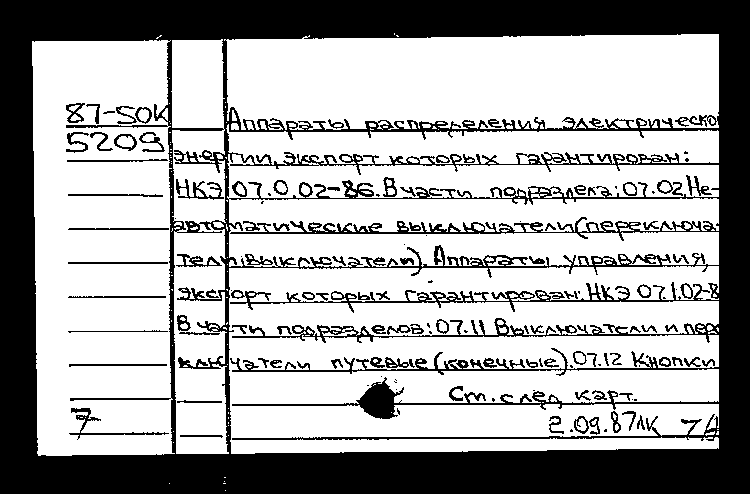 87-50К
5209
Аппараты распределения электрическо
энергии, экспорт которых гарантирован:
НКЭ 07.0.02-86. В части подраздела: 07.02 Не-
автоматические выключатели (переключа-
тели, выключатели). Аппараты управления,
экспорт которых гарантирован. НКЭ 07.1.02-8
В части подразделов: 07.11 Выключатели и пере
ключатели путевые (конечные). 07.12 Кнопки
См. след. карт.
7
2.09.87 ЛК